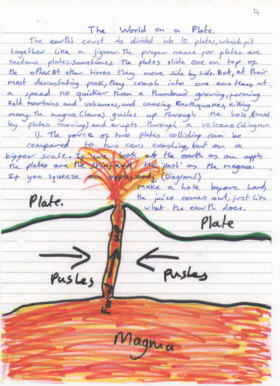 4
The World on a Plate.
The earths crust is divided up to plates, which fit
together like a jigsaw. The proper name for plates are
tectonic plates. Sometimes the plates slide one on top of
the other. At other times they move side by side. But, at their
most devastating pace, they crash into one another at
a speed no quicker than a thumbnail growing, forming
fold mountains and volcanoes, and causing Earthquakes, killing
many. The magma (lava), gushes up through the hole, (made
by plates moving) and erupts through a volcano (diagram
1). The force of two plates colliding can be
compared to two cars crashing, but on a
bigger scale. If you look at the earth as an apple
the plates are the skin and the flesh as the magma.
If you squeeze an apple and, (Diagram)
make a hole, squeeze hard,
the juice comes out, just like
what the earth does.
Plate.
Plate
Pushes
Pushes
Magma